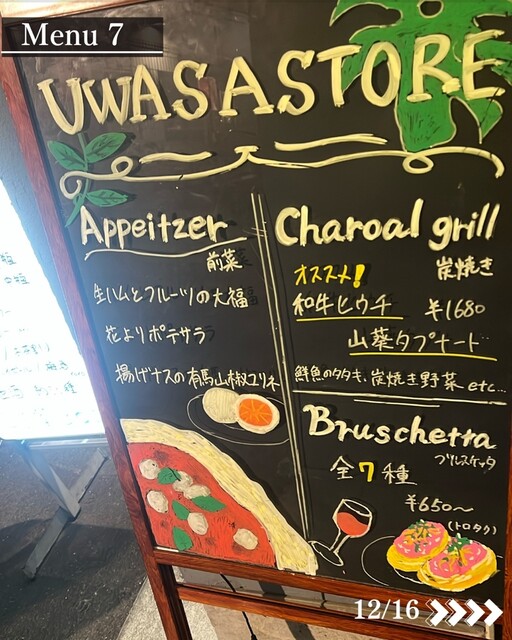 Menu 7
UWASASTORE
Appeitzer
前菜
生ハムとフルーツの大福
花よりポテサラ
揚げナスの有馬山椒ユリネ
Charoal grill
炭焼き
オススメ!
和牛ヒウチ ¥1680
山葵タプナード
鮮魚のタタキ、炭焼き野菜 etc...
Bruschetta
ブルスケッタ
全7種
¥650〜
(トロタク)
12/16